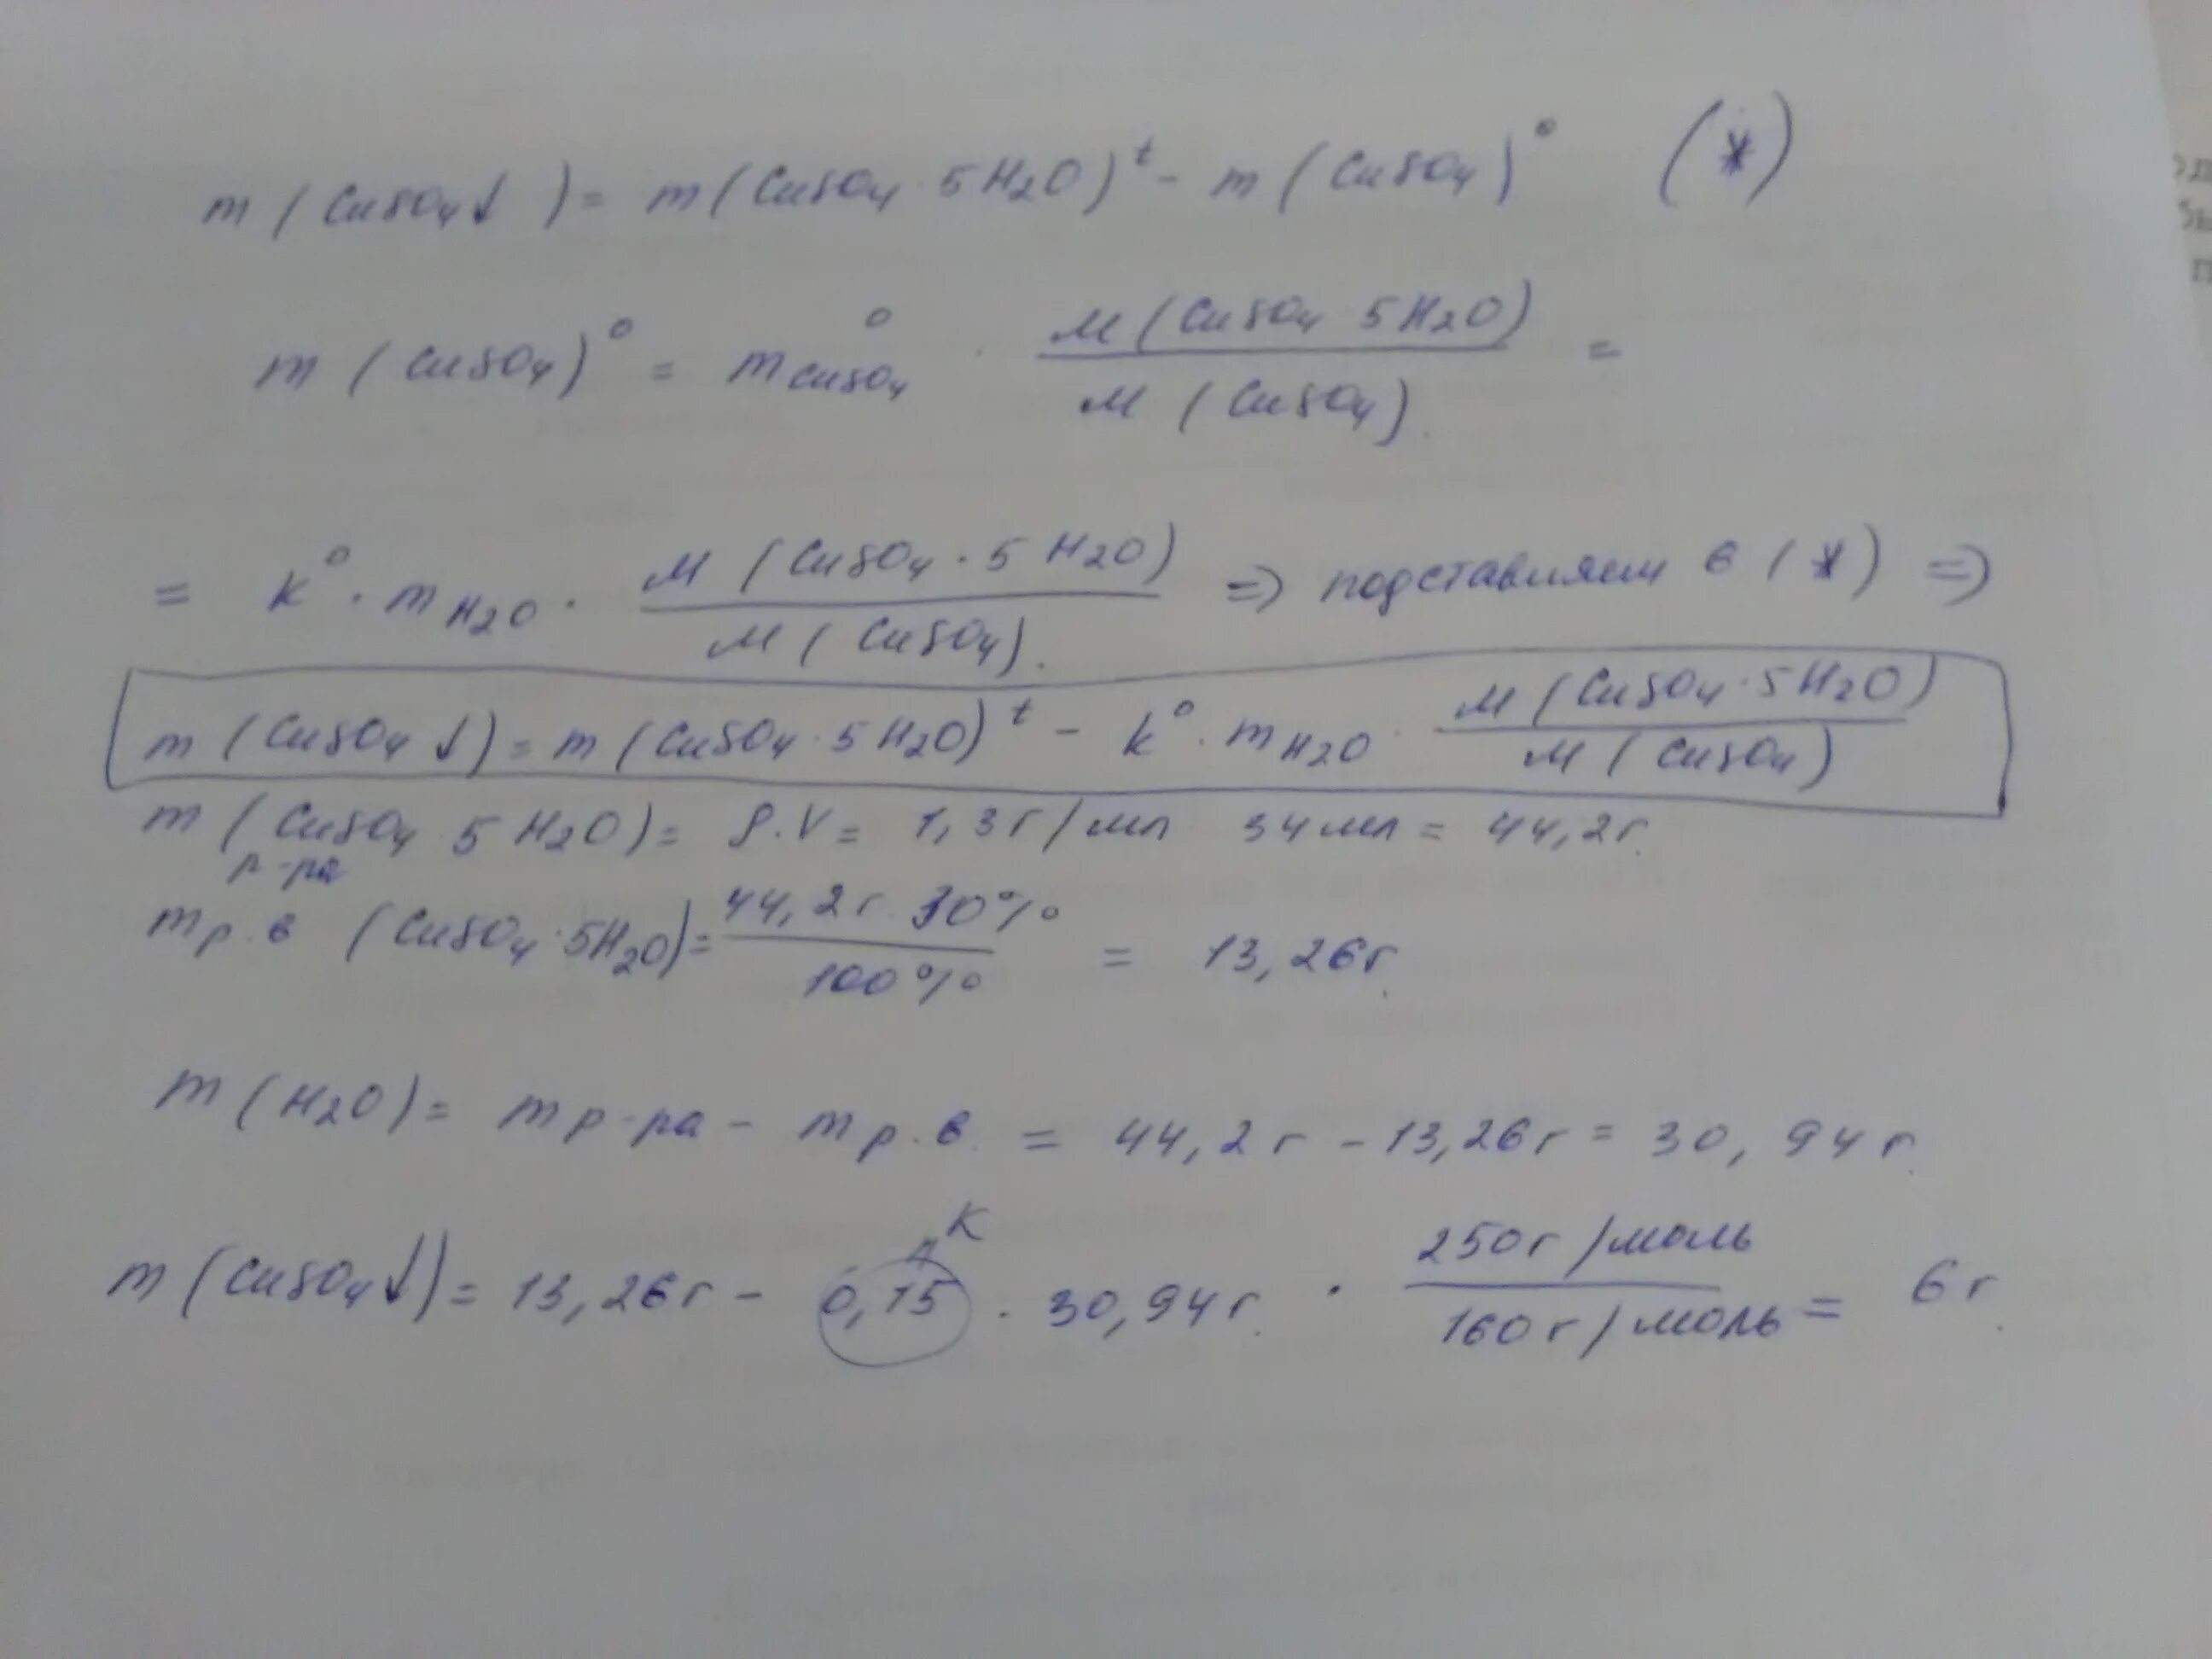 m (CuSO4↓) = m (CuSO4 · 5H2O)^t - m (CuSO4)° (*)
m (CuSO4)° = m°CuSO4 · M (CuSO4 5H2O) / M (CuSO4) =
= k° · mH2O · M (CuSO4 · 5H2O) / M (CuSO4) => подставляем в (*) =>
m (CuSO4↓) = m (CuSO4 · 5H2O)^t - k° · mH2O · M (CuSO4 · 5H2O) / M (CuSO4)
m р-ра (CuSO4 5H2O) = ρ · V = 1,3 г/мл · 34 мл = 44,2 г.
m р.в (CuSO4 · 5H2O) = 44,2 г · 30% / 100% = 13,26 г.
m (H2O) = m р-ра - m р.в. = 44,2 г - 13,26 г = 30,94 г.
K
m (CuSO4↓) = 13,26 г - 0,15 · 30,94 г · 250 г/моль / 160 г/моль = 6 г.